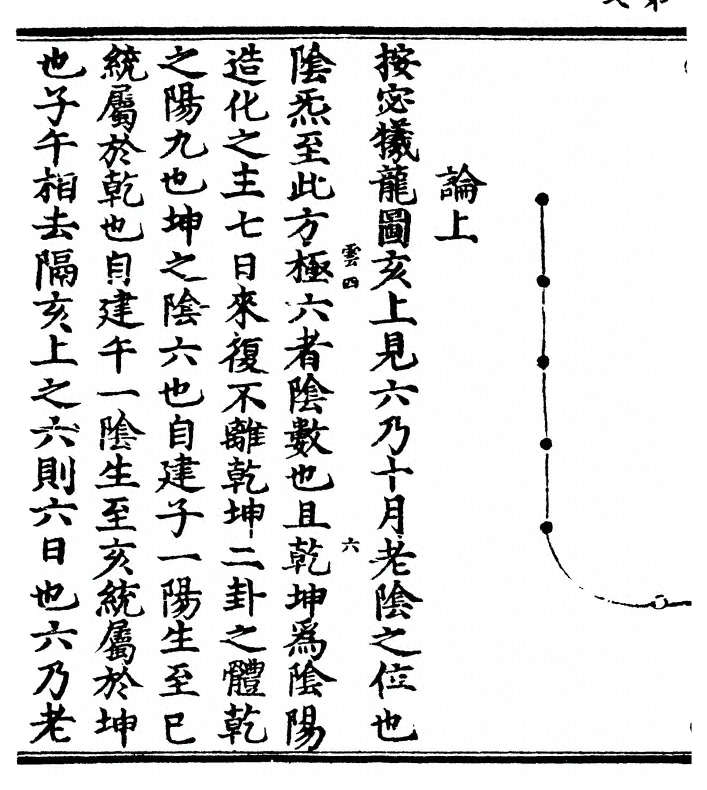 論上
按宓犧龍圖亥上見六乃十月老陰之位也
雲四 六
陰炁至此方極六者陰數也且乾坤爲陰陽
造化之主七日來復不離乾坤二卦之體乾
之陽九也坤之陰六也自建子一陽生至巳
統屬於乾也自建午一陰生至亥統屬於坤
也子午相去隔亥上之六則六日也六乃老